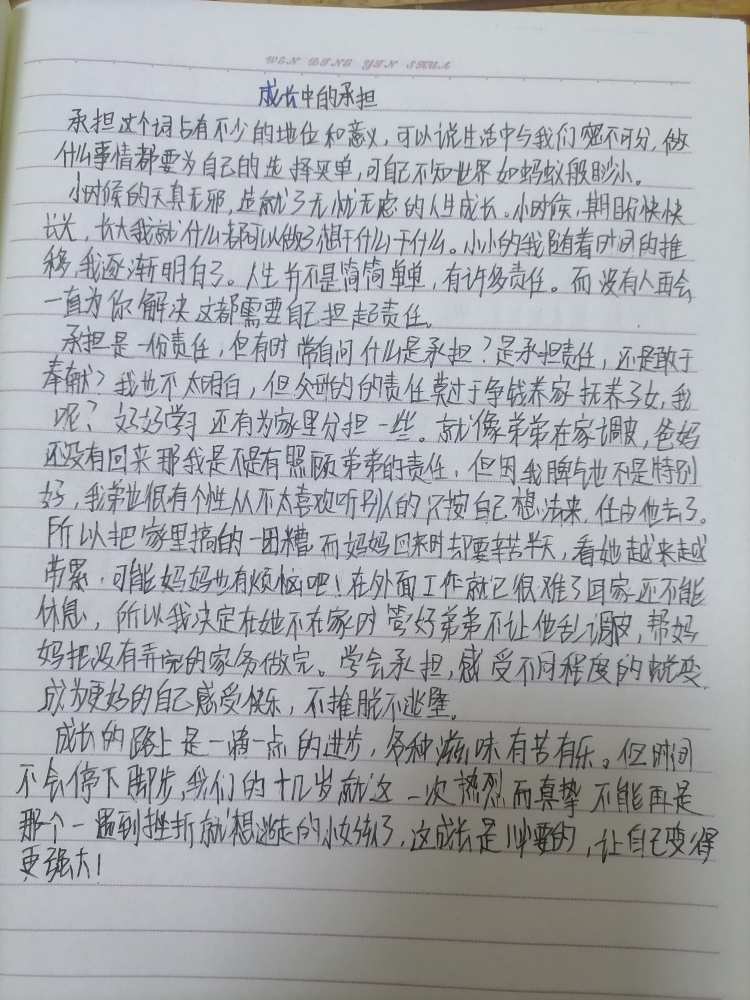 WEN DING YIN SHUA
成长中的承担
承担这个词占有不少的地位和意义,可以说生活中与我们密不可分,做
什么事情都要为自己的选择买单,可自己不知世界如蚂蚁般渺小。
小时候的天真无邪,造就了无忧无虑的人生成长。小时候,期盼快快
长大,长大我就什么都可以做了想干什么干什么。小小的我随着时间的推
移,我逐渐明白了。人生并不是简简单单,有许多责任。而没有人再会
一直为你解决这都需要自己担起责任。
承担是一份责任,但有时常自问什么是承担?是承担责任,还是敢于
奉献?我也不太明白,但父母的的责任莫过于争钱养家抚养子女,我
呢?好好学习还有为家里分担一些。就像弟弟在家调皮,爸妈
还没有回来那我是不是有照顾弟弟的责任,但因我脾气也不是特别
好,我弟也很有个性从不太喜欢听别人的只按自己想法来,任由他去了。
所以把家里搞的一团糟而妈妈回来时却要辛苦半天,看她越来越
劳累,可能妈妈也有烦恼吧!在外面工作就已很难了回家还不能
休息,所以我决定在她不在家时管好弟弟不让他乱调皮,帮妈
妈把没有弄完的家务做完。学会承担,感受不同程度的蜕变,
成为更好的自己感受快乐,不推脱不逃壁。
成长的路上是一滴一点的进步,各种滋味有苦有乐。但时间
不会停下脚步,我们的十几岁就这一次热烈而真挚不能再是
那个一遇到挫折就想逃走的小女孩了,这成长是必要的,让自己变得
更强大!